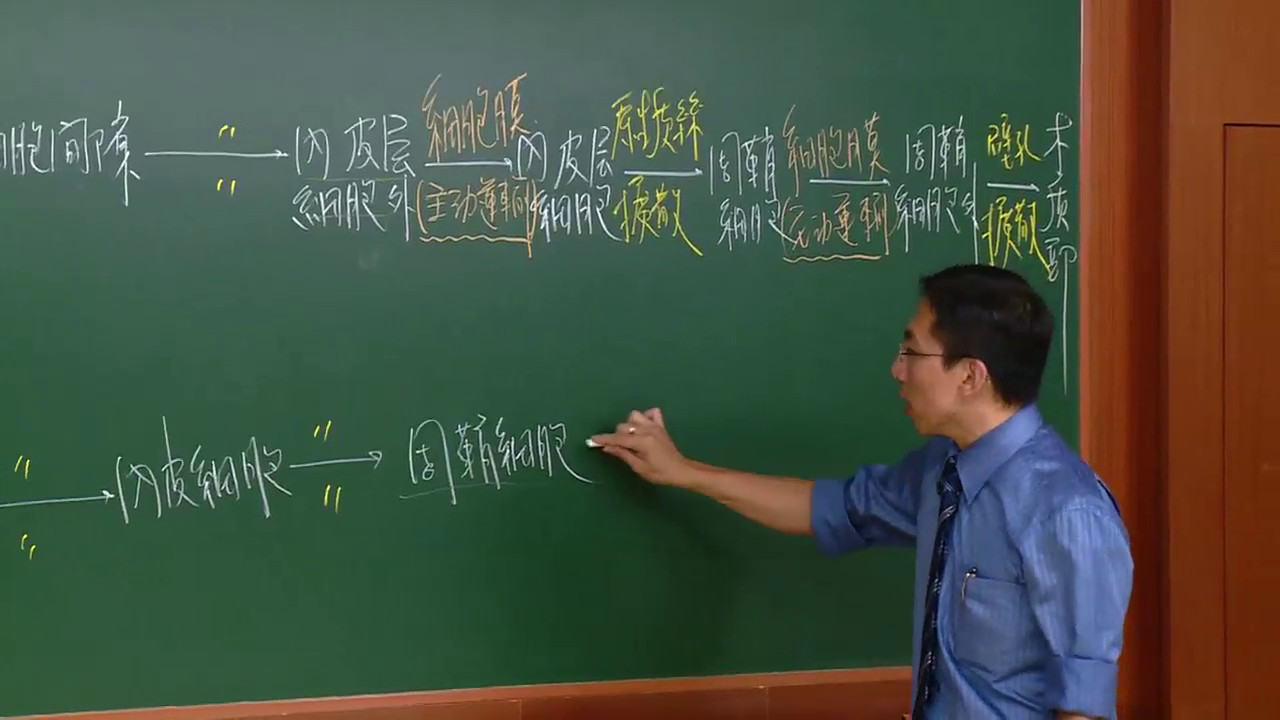 胞间隙 〃 〃 內皮层細胞外 細胞膜 (主动運輸) 內皮层細胞 原生质絲 擴散 周鞘細胞 細胞膜 (主动運輸) 周鞘細胞外 壁孔 擴散 木质部
〃 〃 內皮細胞 〃 〃 周鞘細胞